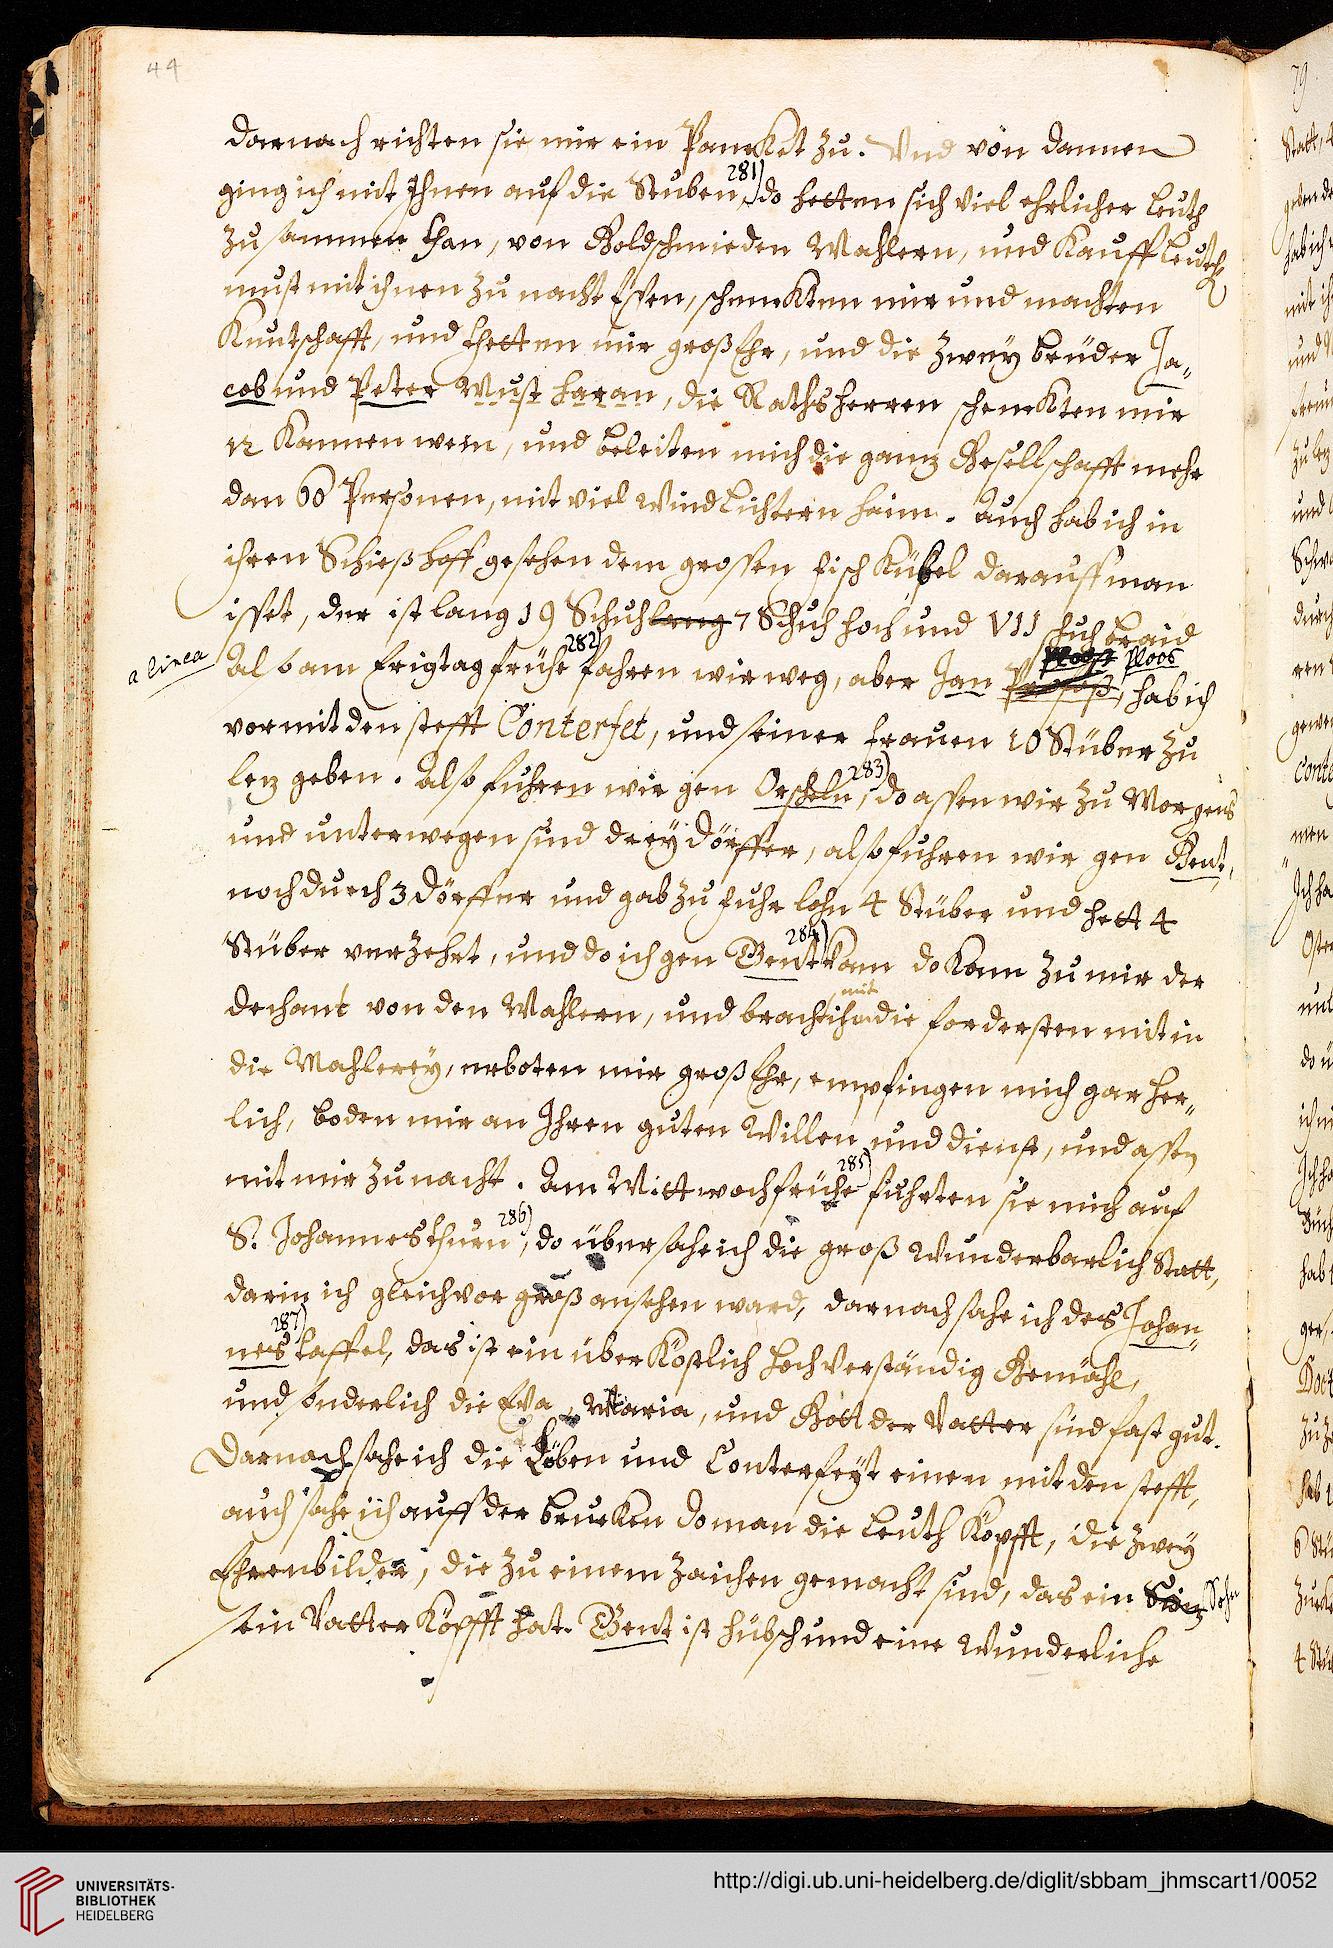 44
darnach richten sie mir ein Pancket zu. Vnd von dannen
ging ich mit Ihnen auf die Stuben, 281) do hetten sich viel ehrlicher Leuth
zusammen than, von Goldschmieden Mahlern, und Kauffleuth
must mit ihnen zu nacht Essen, schenckten mir und machten
Kuntschafft, und thetten mir groß Ehr, und die zwey brüder Ja-
cob und Peter Mustharan, die Rathsherren schenckten mir
12 Kannen wein, und beleiten mich die gantz Gesellschafft mehr
dan 60 Personen, mit viel Windlichtern heim. Auch hab ich in
ihren Schießhoff gesehen dem grossen fisch Kübel darauff man
isset, der ist lang 19 Schuh lang 7 Schuh hoch und VII schuh braid
a linea
Also am Erigtag frühe 282) fahren wir weg, aber Jan Ploos hab ich
vor mit den stefft Conterfet, und seiner frauen 10 Stüber zu
letz geben. Also fuhren wir gen Orscheln, 283) do assen wir zu Morgens
und unterwegen sind drey Dörffer, also fuhren wir gen Gent,
noch durch 3 Dörffer und gab zu fuhrlohn 4 Stüber und hett 4
Stüber verzehrt, und do ich gen Gent 284) kam do kam zu mir der
dechant von den Mahlern, und bracht mit ihm die fordersten mit in
die Mahlerey, erboten mir groß Ehr, empfingen mich gar her-
lich, boden mir an Ihren guten Willen und dienst, und assen
mit mir zu nacht. Am Mittwoch frühe 285) führten sie mich auf
S. Johannes thurn 286), do übersahe ich die groß Wunderbarlich Statt,
darin ich gleich vor groß ansehen ward, darnach sahe ich des Johan-
nes 287) taffel, das ist ein über Köstlich hoch Verständig Gemähl,
und sonderlich die Eva, Maria, und Gott der Vatter sind fast gut.
Darnach sahe ich die Löben und Conterfeyt einen mit den stefft,
auch sahe ich auff der brucken do man die Leuth Köpfft, die zwey
Ehrenbilder, die zu einem zaichen gemacht sind, das ein Sohn
sein Vatter Köpfft hat. Gent ist hübsch und eine Wunderliche
UNIVERSITÄTS-
BIBLIOTHEK
HEIDELBERG
http://digi.ub.uni-heidelberg.de/diglit/sbbam_jhmscart1/0052